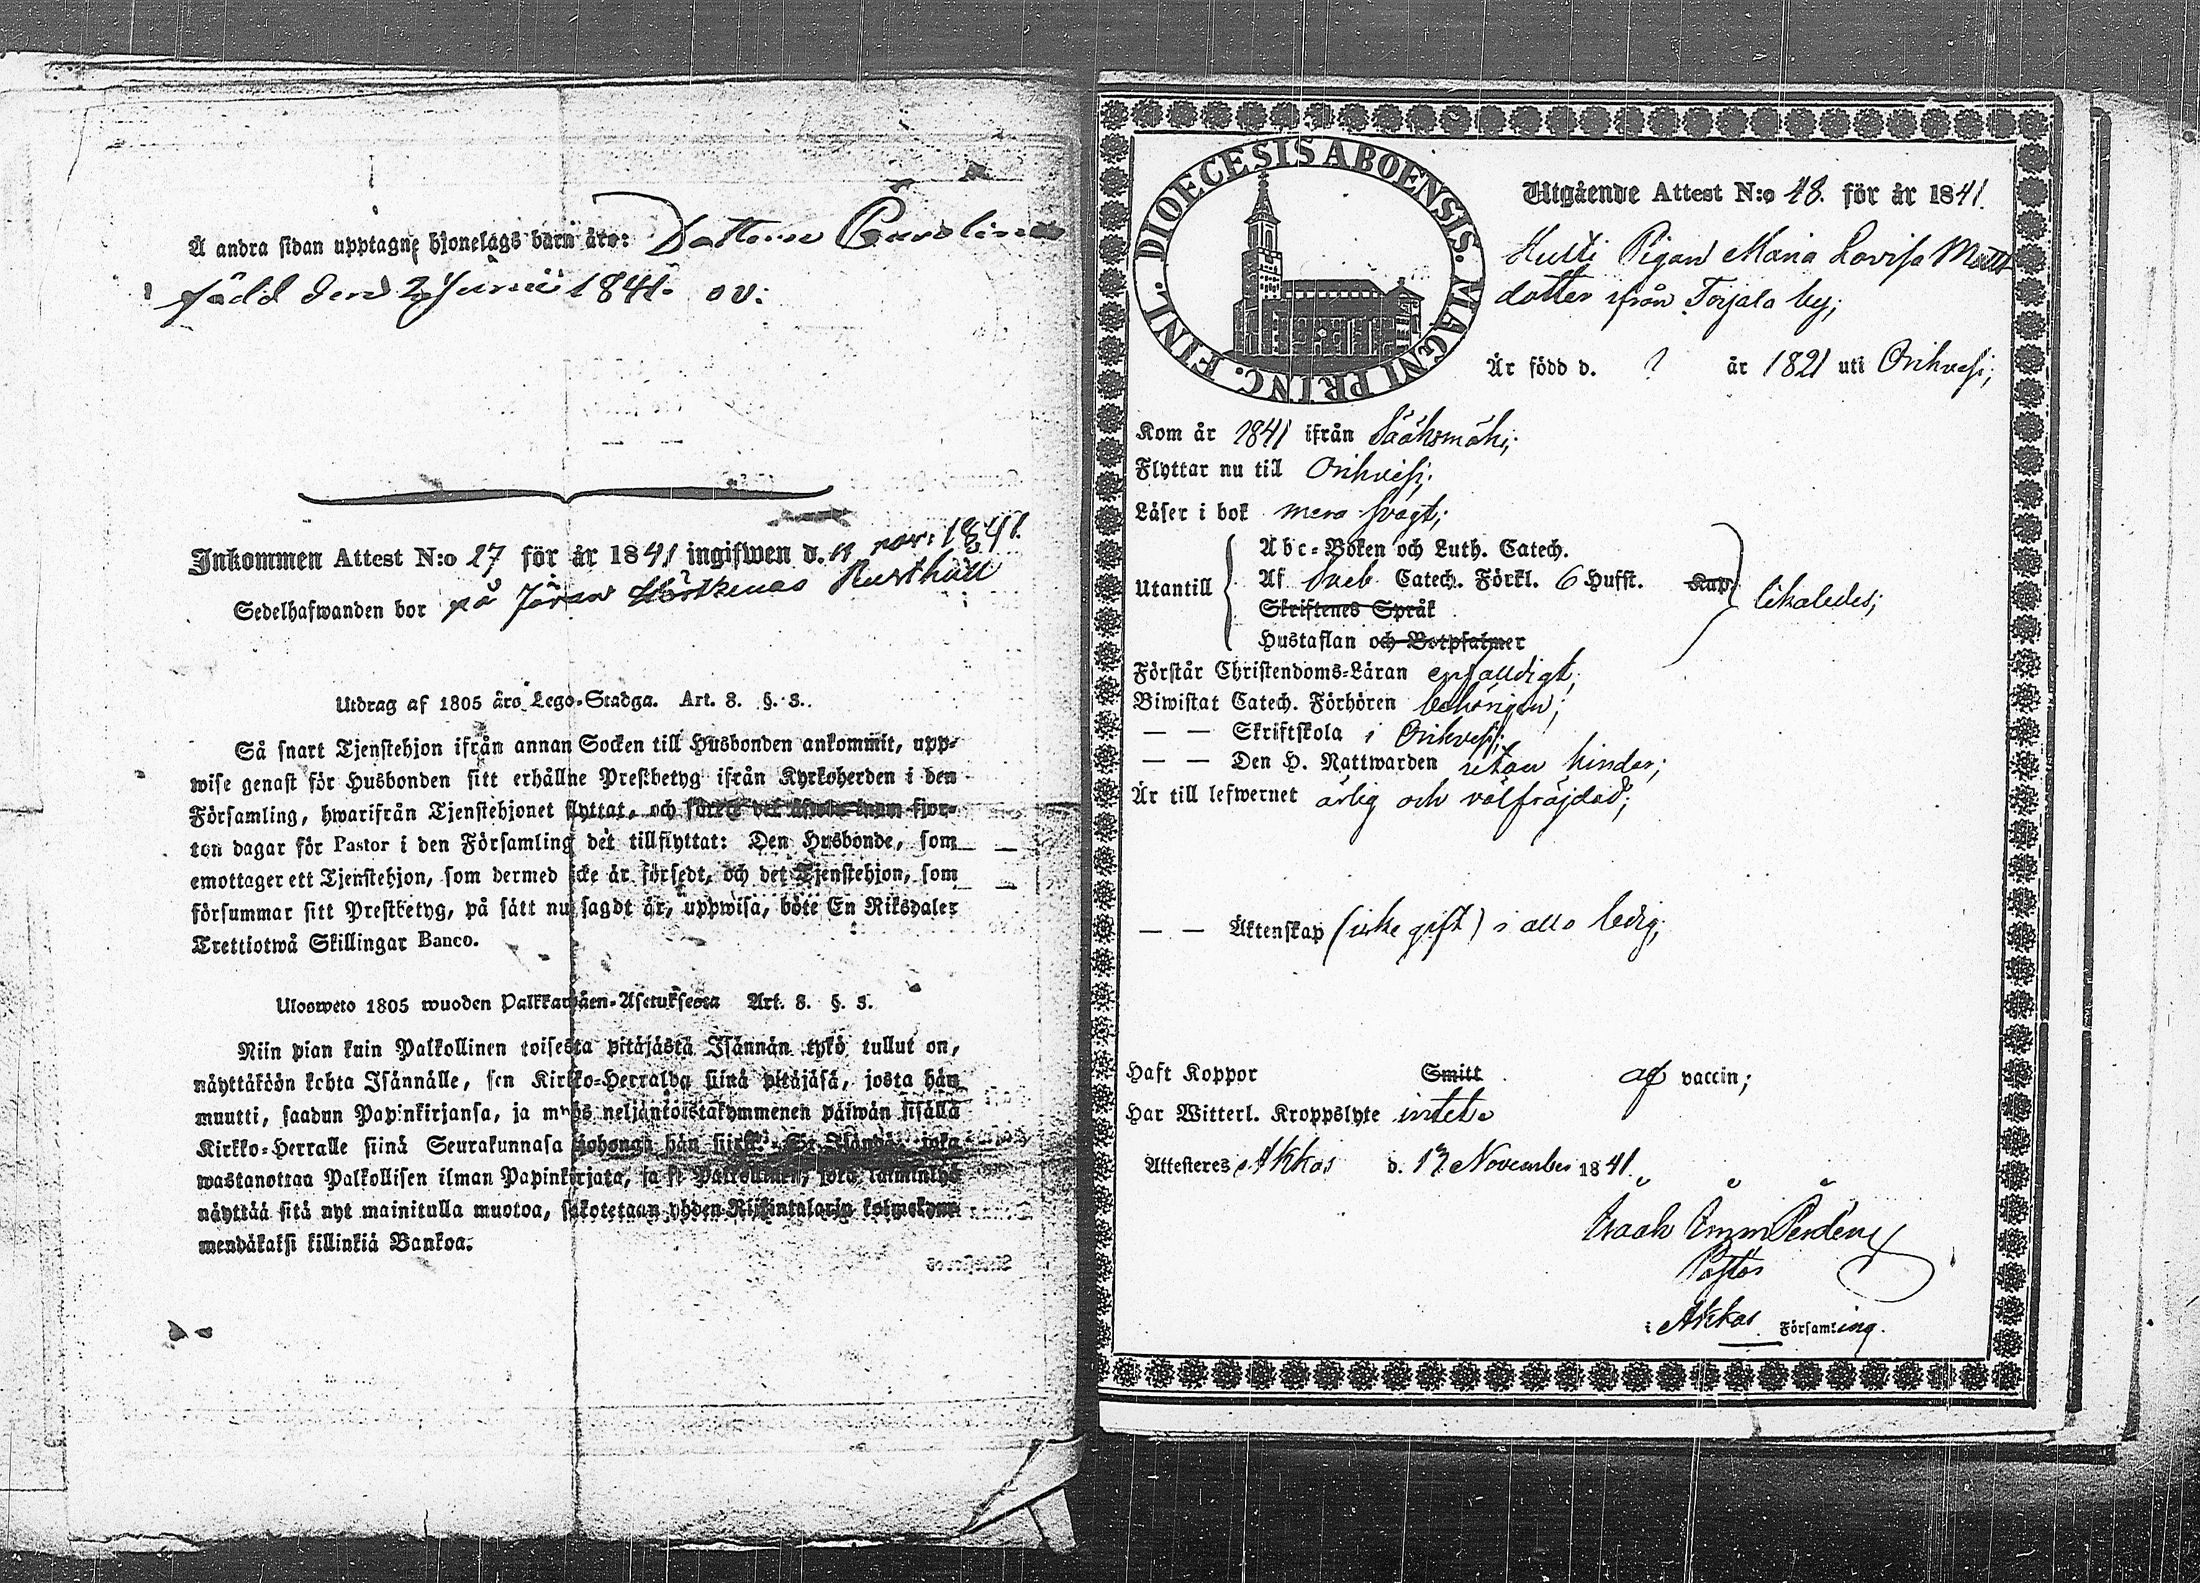 Å andra sidan upptagne hjonelags barn äro: Dottern Carolina
född den 2 Junii 1841. ov:
Inkommen Attest N:o 27 för år 1841 ingifwen d. 11 nov: 1841.
Sedelhafwanden bor på Jöran Rusthåll
Utdrag af 1805 års Lego-Stadga. Art. 8. §. 3.
Så snart Tjenstehjon ifrån annan Socken till Husbonden ankommit, upp-
wise genast för Husbonden sitt erhållne Prestbetyg ifrån Kyrkoherden i den
Församling, hwarifrån Tjenstehjonet flyttat, och inom fjor-
ton dagar för Pastor i den Församling det tillflyttat: Den Husbonde, som
emottager ett Tjenstehjon, som dermed icke är försedt, och det Tjenstehjon, som
försummar sitt Prestbetyg, på sätt nu sagdt är, uppwisa, böte En Riksdaler
Trettiotwå Skillingar Banco.
Ulosweto 1805 wuoden Palkkawäen-Asetuksesta Art. 8. §. 3.
Niin pian kuin Palkollinen toisesta pitäjästä Isännän tykö tullut on,
näyttäköön kohta Isännälle, sen Kirkko-Herralda siinä pitäjäsä, josta hän
muutti, saadun Papinkirjansa, ja myös neljäntoistakymmenen päiwän sisällä
Kirkko-Herralle siinä Seurakunnasa johonga hän siirsi: Se Isändä, joka
wastanottaa Palkollisen ilman Papinkirjata, ja se Palkollinen, joka laiminlyö
näyttää sitä nyt mainitulla muotoa, sakotetaan yhden Riikintalarin kolmekym-
mendäkaksi killinkiä Bankoa.
DIOECESIS ABOENSIS. MAGNI PRINC. FINL.
Utgående Attest N:o 48. för år 1841.
Pigan Maria Lovisa Matts
dotter ifrån Torjala by;
Är född d. ? år 1821 uti Orihvesi;
Kom år 1841 ifrån Sääksmäki;
Flyttar nu till Orihvesi;
Läser i bok mera svagt;
Utantill
Abc-Boken och Luth. Catech.
Af Sveb. Catech. Förkl. 6 Hufst. Kap.
Skriftenes Språk
Hustaflan och Botpsalmer
likaledes;
Förstår Christendoms-Läran enfalldigt;
Biwistat Catech. Förhören behörigen;
— — Skriftskola i Orihvesi;
— — Den H. Nattwarden utan hinder;
Är till lefwernet ärlig och välfräjdad;
— — Äktenskap (icke gift) i allo ledig;
Haft Koppor Smitt af vaccin;
Har Witterl. Kroppslyte intet.
Attesteres Akkas d. 13 November 1841.
Isaak Emm
Pastor
i Akkas Församling.